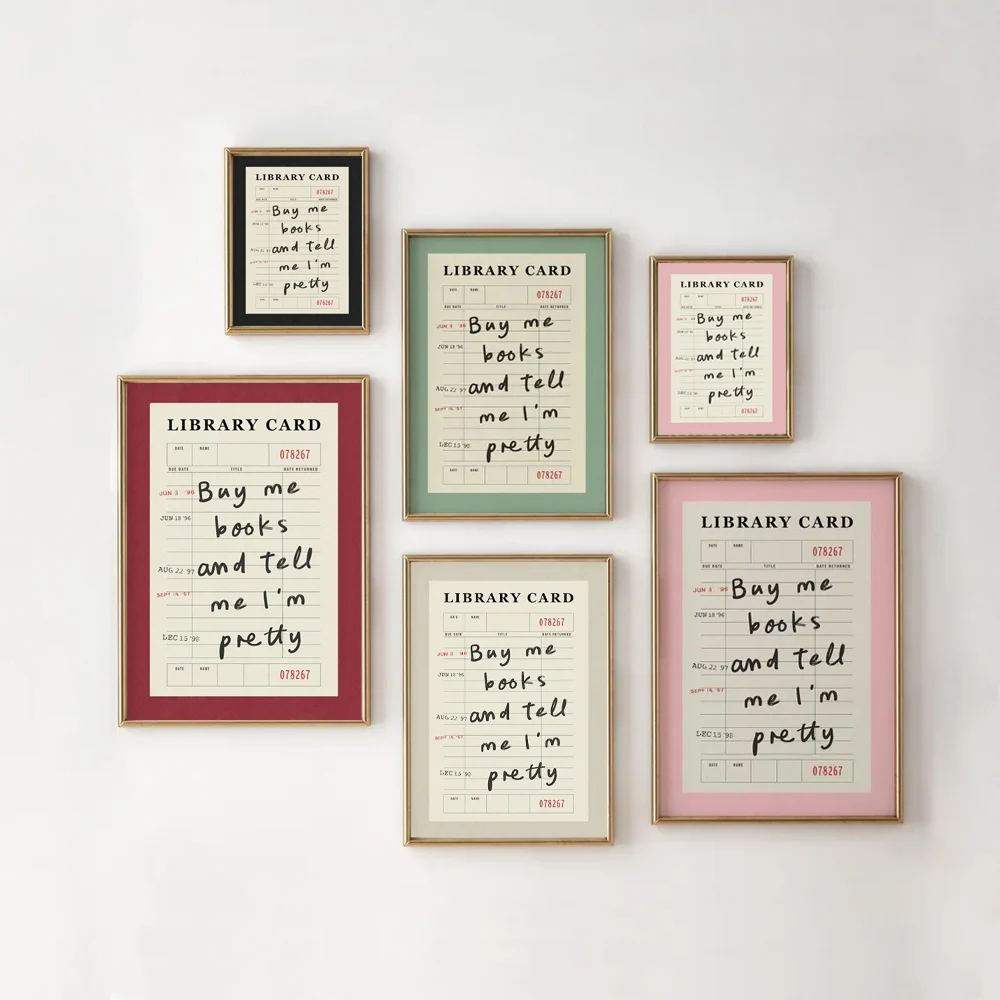 LIBRARY CARD
078267
Buy me
books
and tell
me I'm
pretty
078267
LIBRARY CARD
DATE NAME 078267
DUE DATE TITLE DATE RETURNED
JUN 3 '96 Buy me
JUN 18 '96 books
AUG 22 '97 and tell
me I'm
DEC 15 '98 pretty
DATE NAME 078267
LIBRARY CARD
078267
Buy me
books
and tell
me I'm
pretty
078267
LIBRARY CARD
DATE NAME 078267
DUE DATE TITLE DATE RETURNED
JUN 3 '96 Buy me
JUN 18 '96 books
AUG 22 '97 and tell
me I'm
DEC 15 '98 pretty
DATE NAME 078267
LIBRARY CARD
DATE NAME 078267
DUE DATE TITLE DATE RETURNED
JUN 3 '96 Buy me
JUN 18 '96 books
AUG 22 '97 and tell
me I'm
DEC 15 '98 pretty
DATE NAME 078267
LIBRARY CARD
DATE NAME 078267
DUE DATE TITLE DATE RETURNED
JUN 3 '96 Buy me
JUN 18 '96 books
AUG 22 '97 and tell
me I'm
DEC 15 '98 pretty
DATE NAME 078267